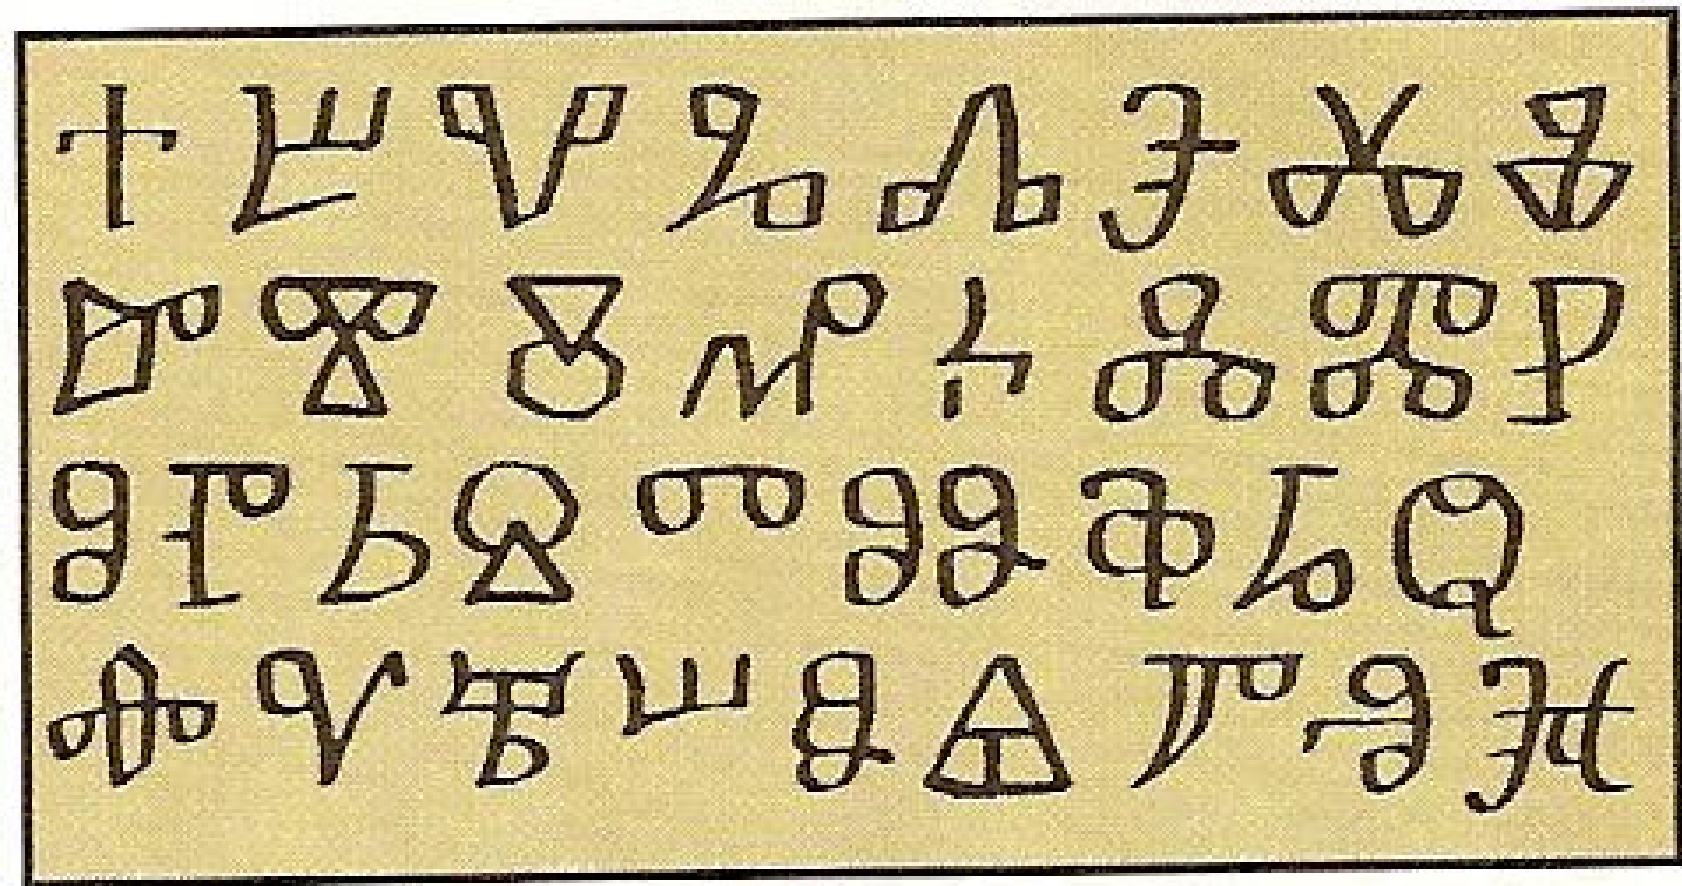 Ⰰ Ⰱ Ⰲ Ⰳ Ⰴ Ⰵ Ⰶ Ⰷ
Ⰸ Ⰺ Ⰻ Ⰼ Ⰽ Ⰾ Ⰿ Ⱀ
Ⱁ Ⱂ Ⱃ Ⱄ Ⱅ Ⱆ Ⱇ Ⱈ Ⱉ
Ⱋ Ⱌ Ⱍ Ⱎ Ⱏ Ⱑ Ⱓ Ⱖ Ⱔ